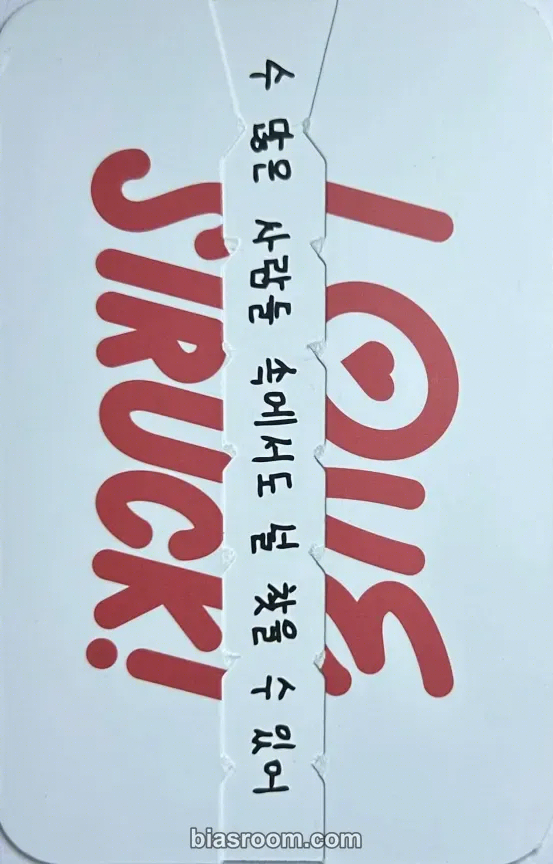 LOVE
수 많은 사람들 속에서도 널 찾을 수 있어
STRUCK!
biasroom.com